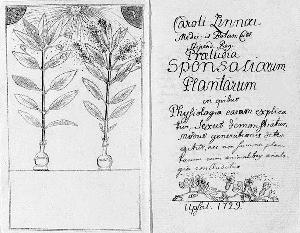 Caroli Linnæi
Medic: et Botan. Cult
Stipend. Reg.
Præludia
SPONSALIORUM
Plantarum
in quibus
Physiologia earum explica
tur, Sexus demonstratur,
modus generationis dete
gitur, nec non summa plan
tarum cum animalibus analo
gia concluditur
Upsal. 1729.